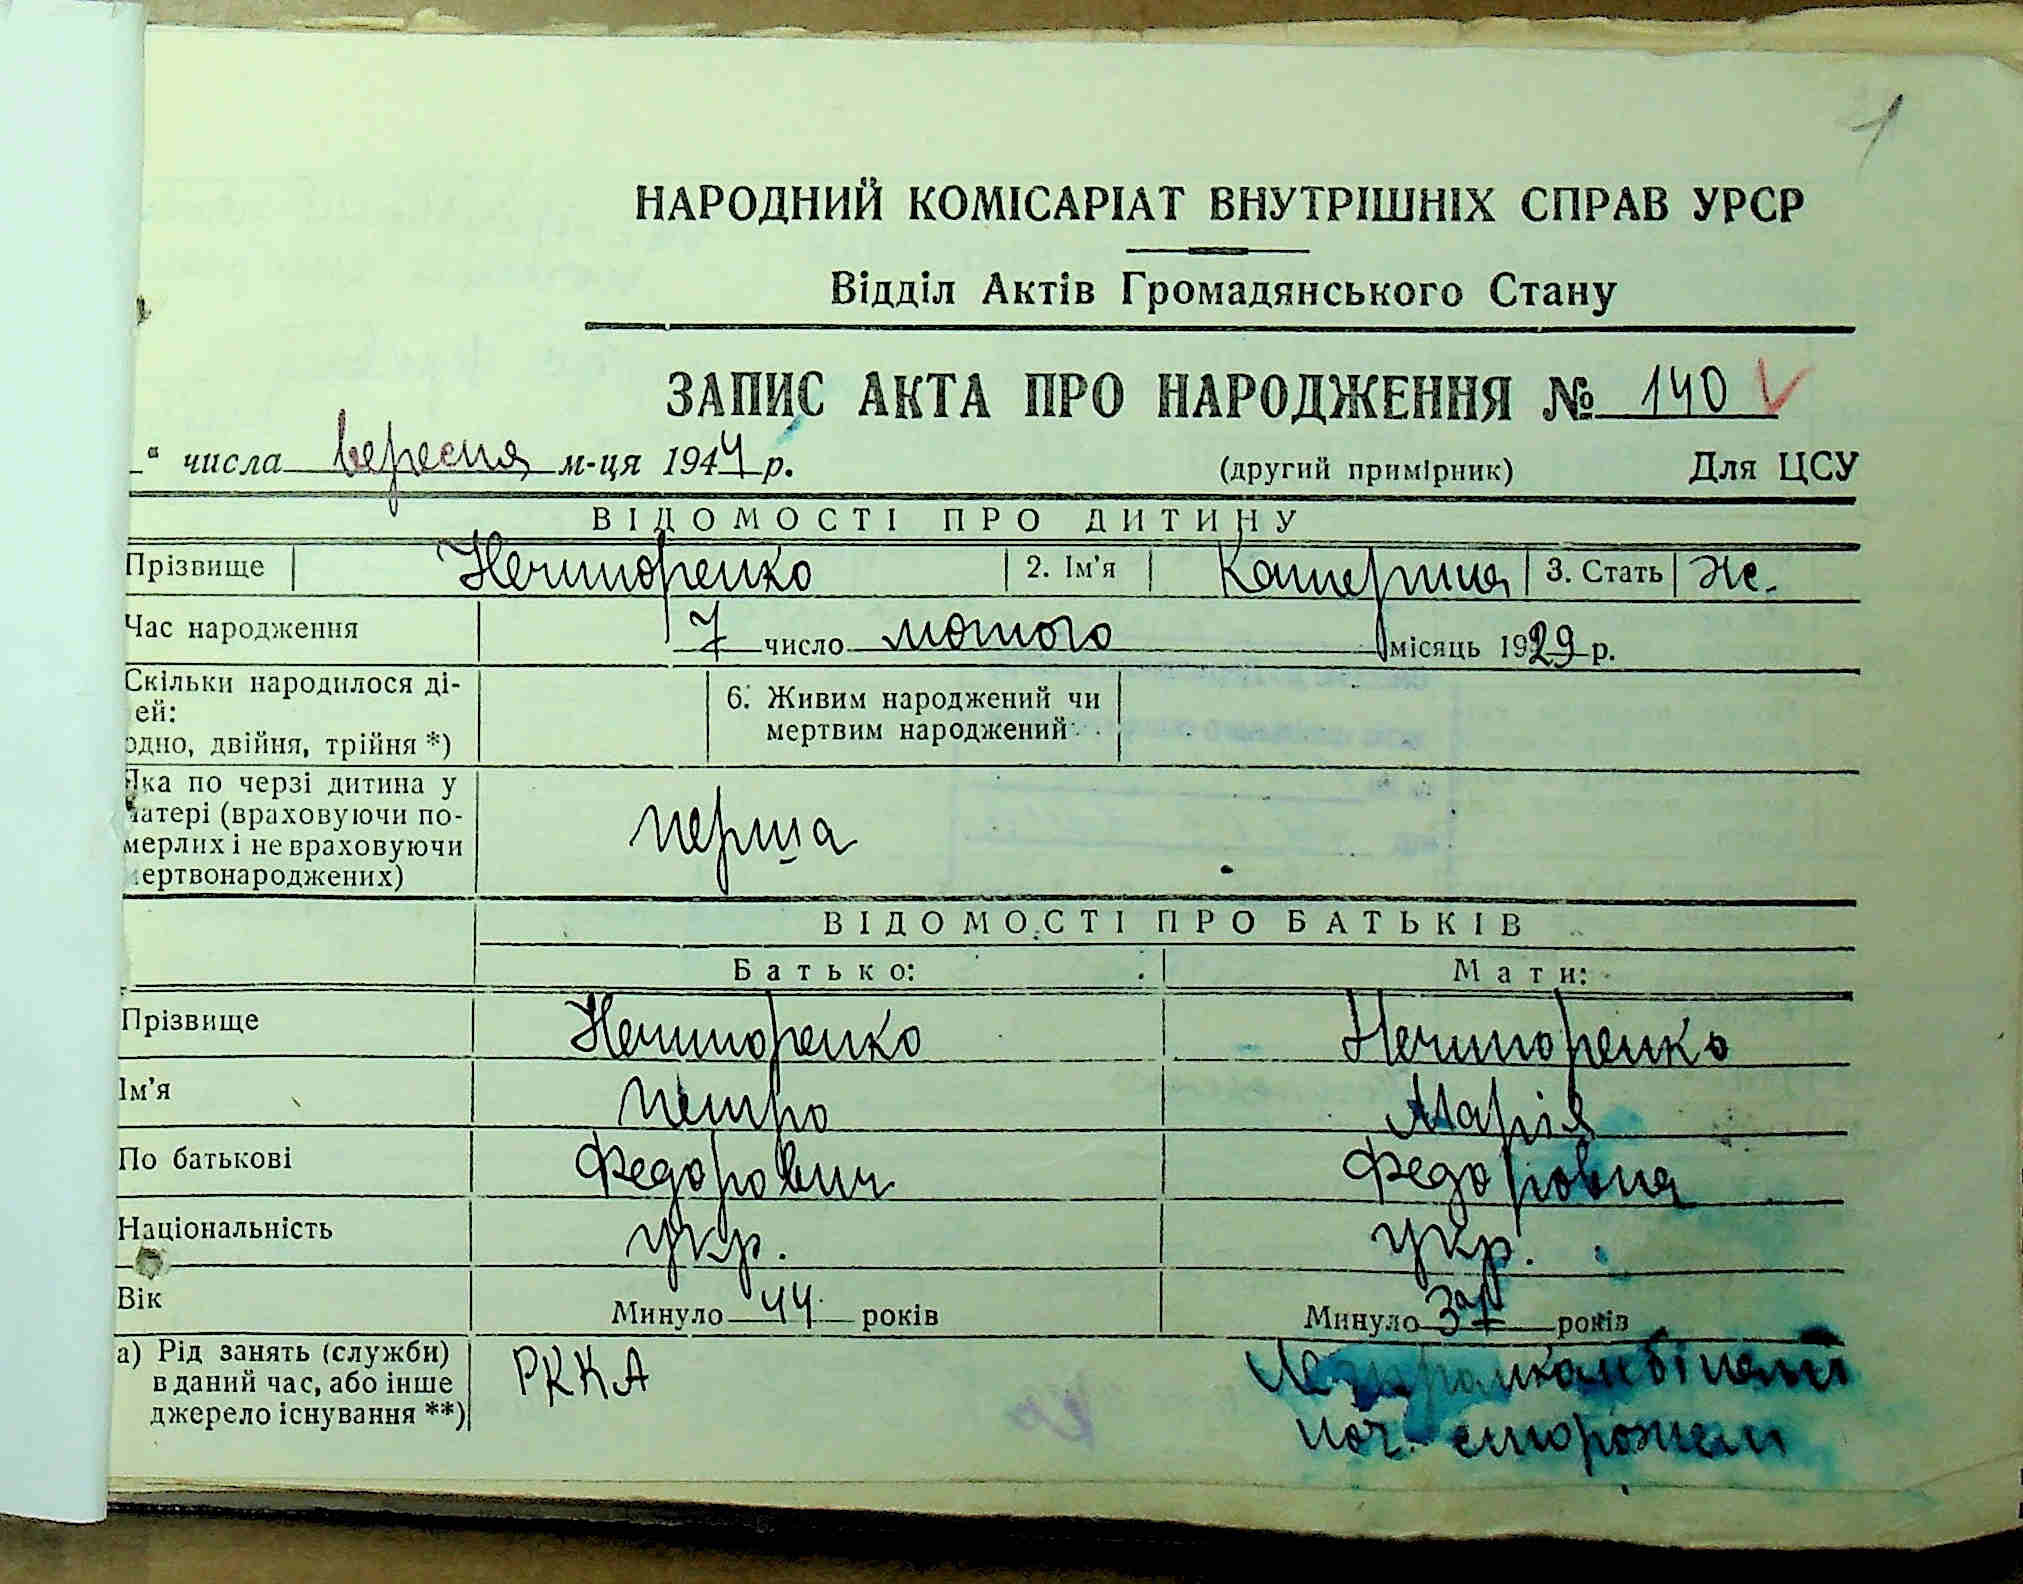 1
НАРОДНИЙ КОМІСАРІАТ ВНУТРІШНІХ СПРАВ УРСР
Відділ Актів Громадянського Стану
ЗАПИС АКТА ПРО НАРОДЖЕННЯ № 140
" числа вересня м-ця 1944 р. (другий примірник) Для ЦСУ
ВІДОМОСТІ ПРО ДИТИНУ
Прізвище Нечипоренко 2. Ім'я Катерина 3. Стать Ж.
Час народження 7 число лютого місяць 1929 р.
Скільки народилося ді-
ей: 6. Живим народжений чи
одно, двійня, трійня *) мертвим народжений
Яка по черзі дитина у
матері (враховуючи по-
мерлих і не враховуючи перша
мертвонароджених)
ВІДОМОСТІ ПРО БАТЬКІВ
Батько: Мати:
Прізвище Нечипоренко Нечипоренко
Ім'я Петро Марія
По батькові Федорович Федоровна
Національність укр. укр.
Вік Минуло 44 років Минуло років
а) Рід занять (служби)
в даний час, або інше РККА
джерело існування **) сторожем